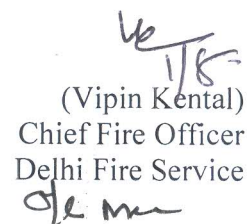 1/8
(Vipin Kental)
Chief Fire Officer
Delhi Fire Service